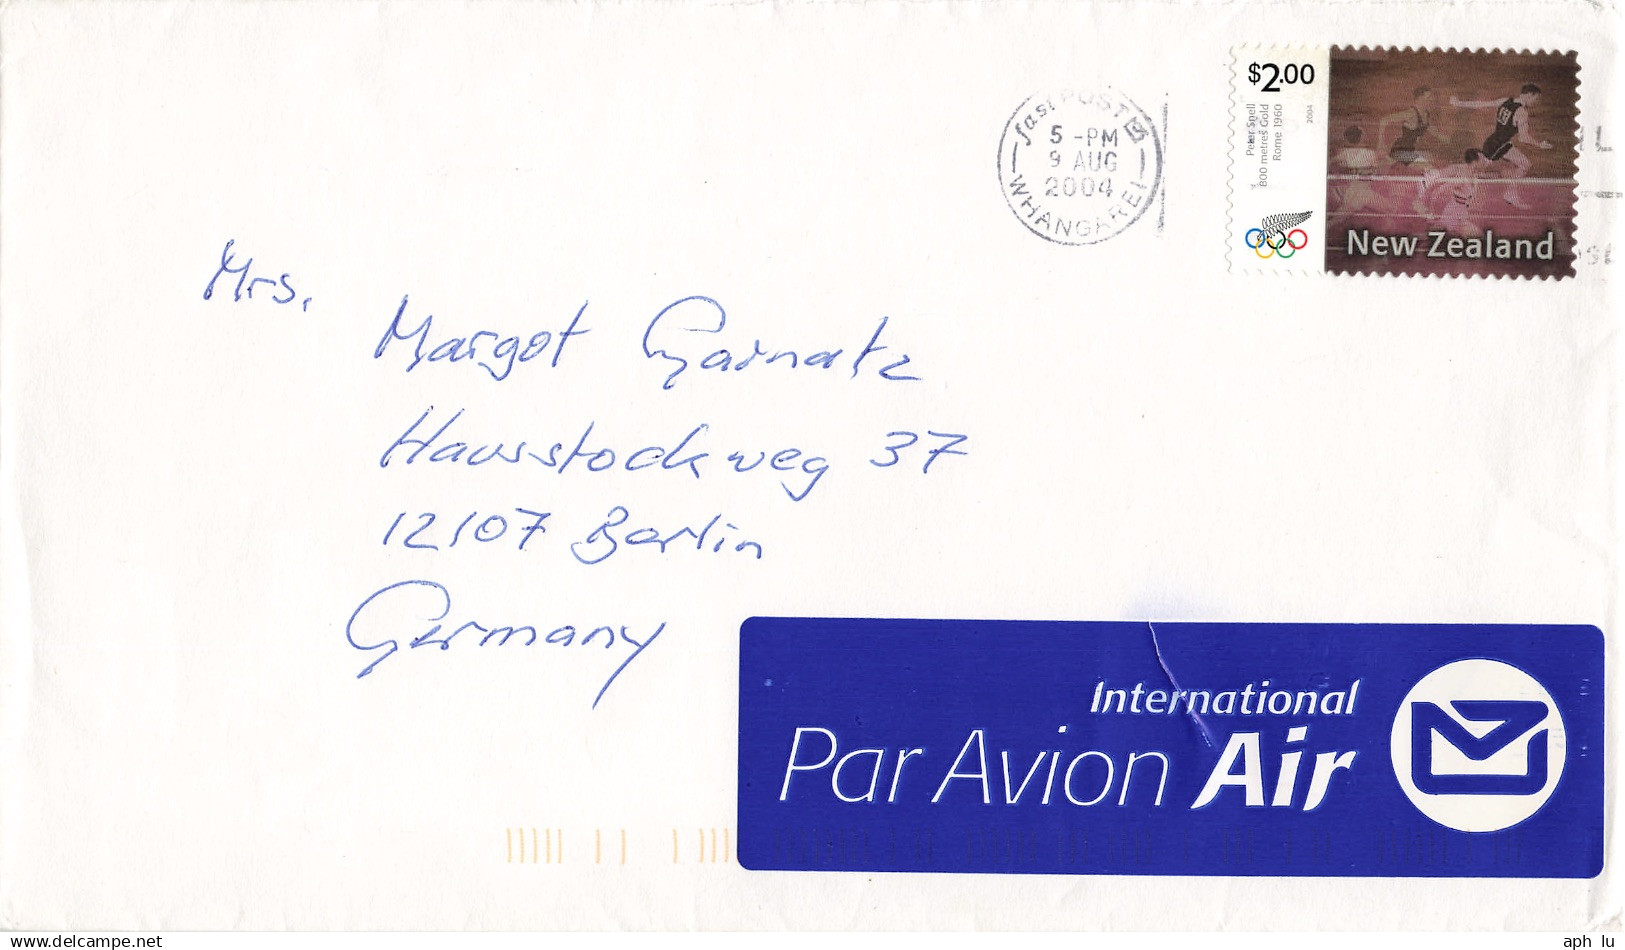 fast POST
5 -PM
9 AUG
2004
WHANGAREI
$2.00
Peter Snell
800 metres Gold
Rome 1960
2004
New Zealand
Mrs.
Margot Garnatz
Hausstockweg 37
12107 Berlin
Germany
International
Par Avion Air
www.delcampe.net
aph_lu